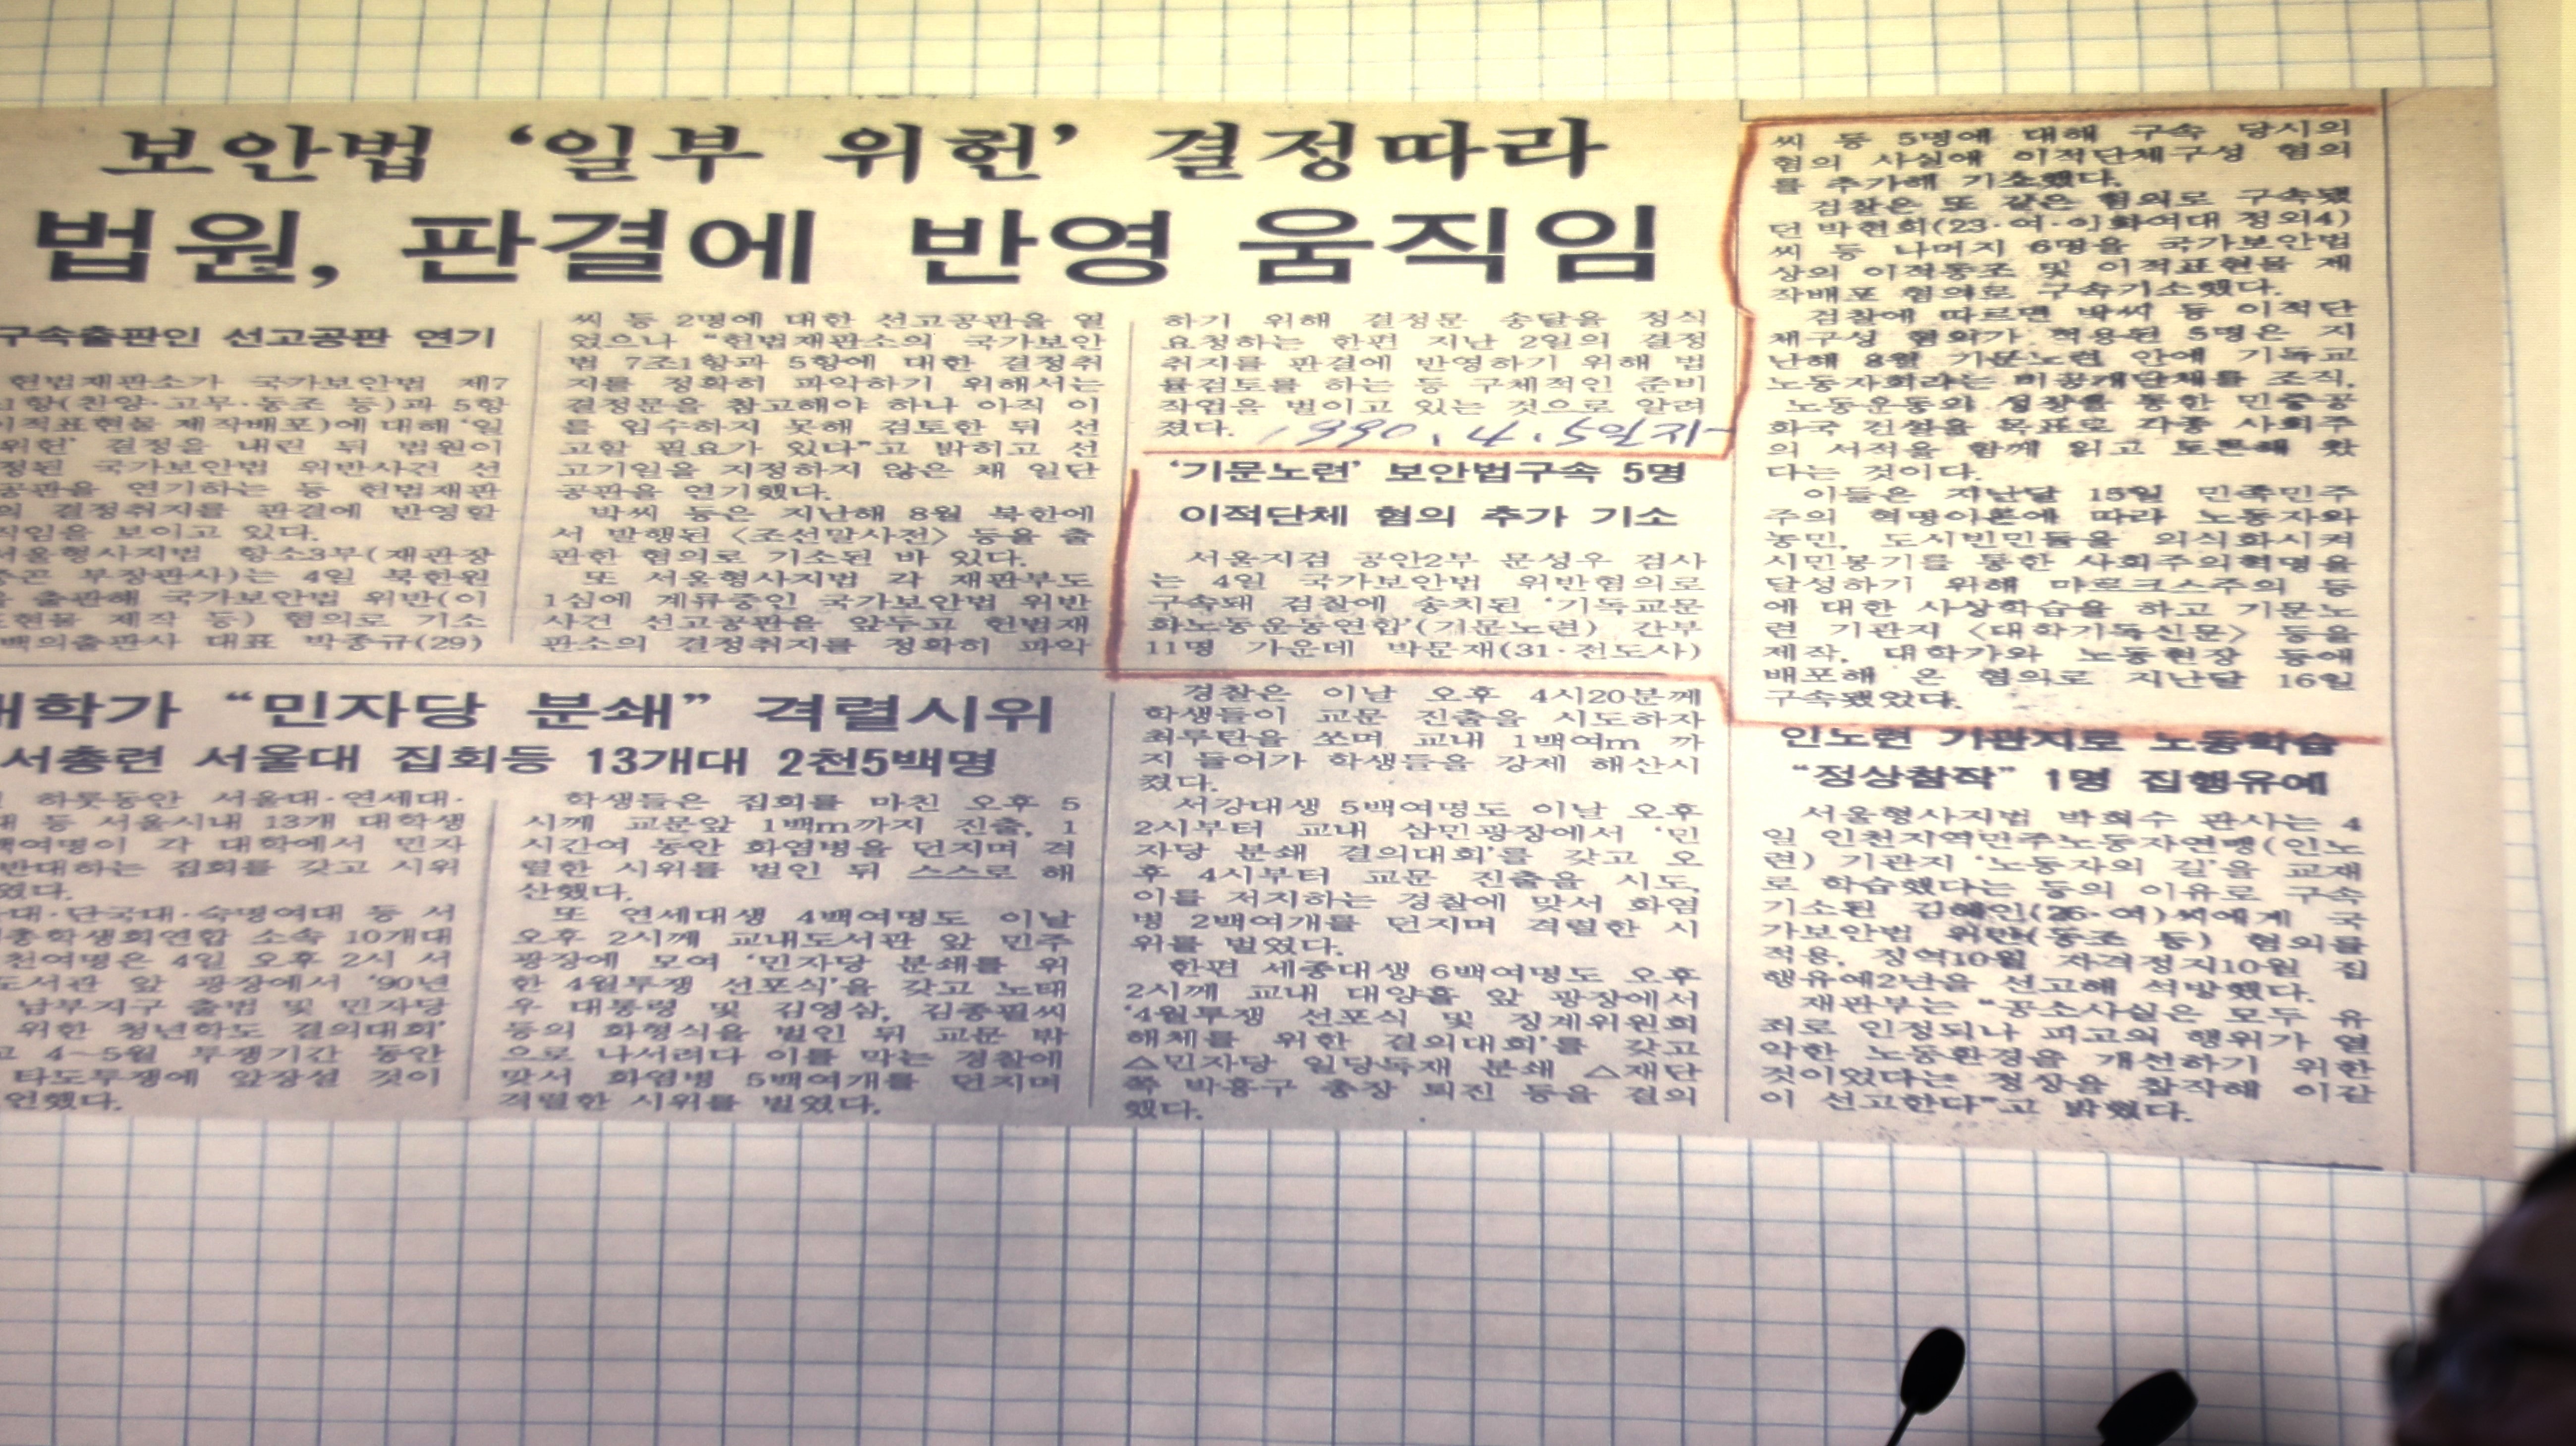 보안법 ‘일부 위헌’ 결정따라
법원, 판결에 반영 움직임
구속출판인 선고공판 연기
헌법재판소가 국가보안법 제7
1항(찬양·고무·동조 등)과 5항
이적표현물 제작배포)에 대해 ‘일
위헌’ 결정을 내린 뒤 법원이
국가보안법 위반사건 선
공판을 연기하는 등 헌법재판
의 결정취지를 판결에 반영할
직임을 보이고 있다.
서울형사지법 항소3부(재판장
부장판사)는 4일 북한원
출판해 국가보안법 위반(이
표현물 제작 등) 혐의로 기소
백의출판사 대표 박종규(29)
씨 등 2명에 대한 선고공판을 열
었으나 “헌법재판소의 국가보안
법 7조1항과 5항에 대한 결정취
지를 정확히 파악하기 위해서는
결정문을 참고해야 하나 아직 이
를 입수하지 못해 검토한 뒤 선
고할 필요가 있다”고 밝히고 선
고기일을 지정하지 않은 채 일단
공판을 연기했다.
박씨 등은 지난해 8월 북한에
서 발행된 〈조선말사전〉 등을 출
판한 혐의로 기소된 바 있다.
또 서울형사지법 각 재판부도
1심에 계류중인 국가보안법 위반
사건 선고공판을 앞두고 헌법재
판소의 결정취지를 정확히 파악
하기 위해 결정문 송달을 정식
요청하는 한편 지난 2일의 결정
취지를 판결에 반영하기 위해 법
률검토를 하는 등 구체적인 준비
작업을 벌이고 있는 것으로 알려
졌다.
1990. 4. 5일자
‘기문노련’ 보안법구속 5명
이적단체 혐의 추가 기소
서울지검 공안2부 문성우 검사
는 4일 국가보안법 위반혐의로
구속돼 검찰에 송치된 ‘기독교문
화노동운동연합’(기문노련) 간부
11명 가운데 박문재(31·전도사)
씨 등 5명에 대해 구속 당시의
혐의 사실에 이적단체구성 혐의
를 추가해 기소했다.
검찰은 또 같은 혐의로 구속됐
던 박현희(23·여·이화여대 정외4)
씨 등 나머지 6명을 국가보안법
상의 이적동조 및 이적표현물 제
작배포 혐의로 구속기소했다.
검찰에 따르면 박씨 등 이적단
체구성 혐의가 적용된 5명은 지
난해 8월 기문노련 안에 기독교
노동자회라는 비공개단체를 조직,
노동운동의 성장을 통한 민중공
화국 건설을 목표로 각종 사회주
의 서적을 함께 읽고 토론해 왔
다는 것이다.
이들은 지난달 15일 민족민주
주의 혁명이론에 따라 노동자와
농민, 도시빈민들을 의식화시켜
시민봉기를 통한 사회주의혁명을
달성하기 위해 마르크스주의 등
에 대한 사상학습을 하고 기문노
련 기관지 〈대학기독신문〉 등을
제작, 대학가와 노동현장 등에
배포해 온 혐의로 지난달 16일
구속됐었다.
대학가 “민자당 분쇄” 격렬시위
서총련 서울대 집회등 13개대 2천5백명
하룻동안 서울대·연세대·
등 서울시내 13개 대학생
백여명이 각 대학에서 민자
반대하는 집회를 갖고 시위
였다.
대·단국대·숙명여대 등 서
총학생회연합 소속 10개대
천여명은 4일 오후 2시 서
도서관 앞 광장에서 ‘90년
남부지구 출범 및 민자당
위한 청년학도 결의대회’
고 4~5월 투쟁기간 동안
타도투쟁에 앞장설 것이
언했다.
학생들은 집회를 마친 오후 5
시께 교문앞 1백m까지 진출, 1
시간여 동안 화염병을 던지며 격
렬한 시위를 벌인 뒤 스스로 해
산했다.
또 연세대생 4백여명도 이날
오후 2시께 교내도서관 앞 민주
광장에 모여 ‘민자당 분쇄를 위
한 4월투쟁 선포식’을 갖고 노태
우 대통령 및 김영삼, 김종필씨
등의 화형식을 벌인 뒤 교문 밖
으로 나서려다 이를 막는 경찰에
맞서 화염병 5백여개를 던지며
격렬한 시위를 벌였다.
경찰은 이날 오후 4시20분께
학생들이 교문 진출을 시도하자
최루탄을 쏘며 교내 1백여m 까
지 들어가 학생들을 강제 해산시
켰다.
서강대생 5백여명도 이날 오후
2시부터 교내 삼민광장에서 ‘민
자당 분쇄 결의대회’를 갖고 오
후 4시부터 교문 진출을 시도,
이를 저지하는 경찰에 맞서 화염
병 2백여개를 던지며 격렬한 시
위를 벌였다.
한편 세종대생 6백여명도 오후
2시께 교내 대양홀 앞 광장에서
‘4월투쟁 선포식 및 징계위원회
해체를 위한 결의대회’를 갖고
△민자당 일당독재 분쇄 △재단
쪽 박홍구 총장 퇴진 등을 결의
했다.
인노련 기관지로 노동학습
“정상참작” 1명 집행유예
서울형사지법 박희수 판사는 4
일 인천지역민주노동자연맹(인노
련) 기관지 ‘노동자의 길’을 교재
로 학습했다는 등의 이유로 구속
기소된 김혜인(26·여)씨에게 국
가보안법 위반(동조 등) 혐의를
적용, 징역10월 자격정지10월 집
행유예2년을 선고해 석방했다.
재판부는 “공소사실은 모두 유
죄로 인정되나 피고의 행위가 열
악한 노동환경을 개선하기 위한
것이었다는 정상을 참작해 이같
이 선고한다”고 밝혔다.